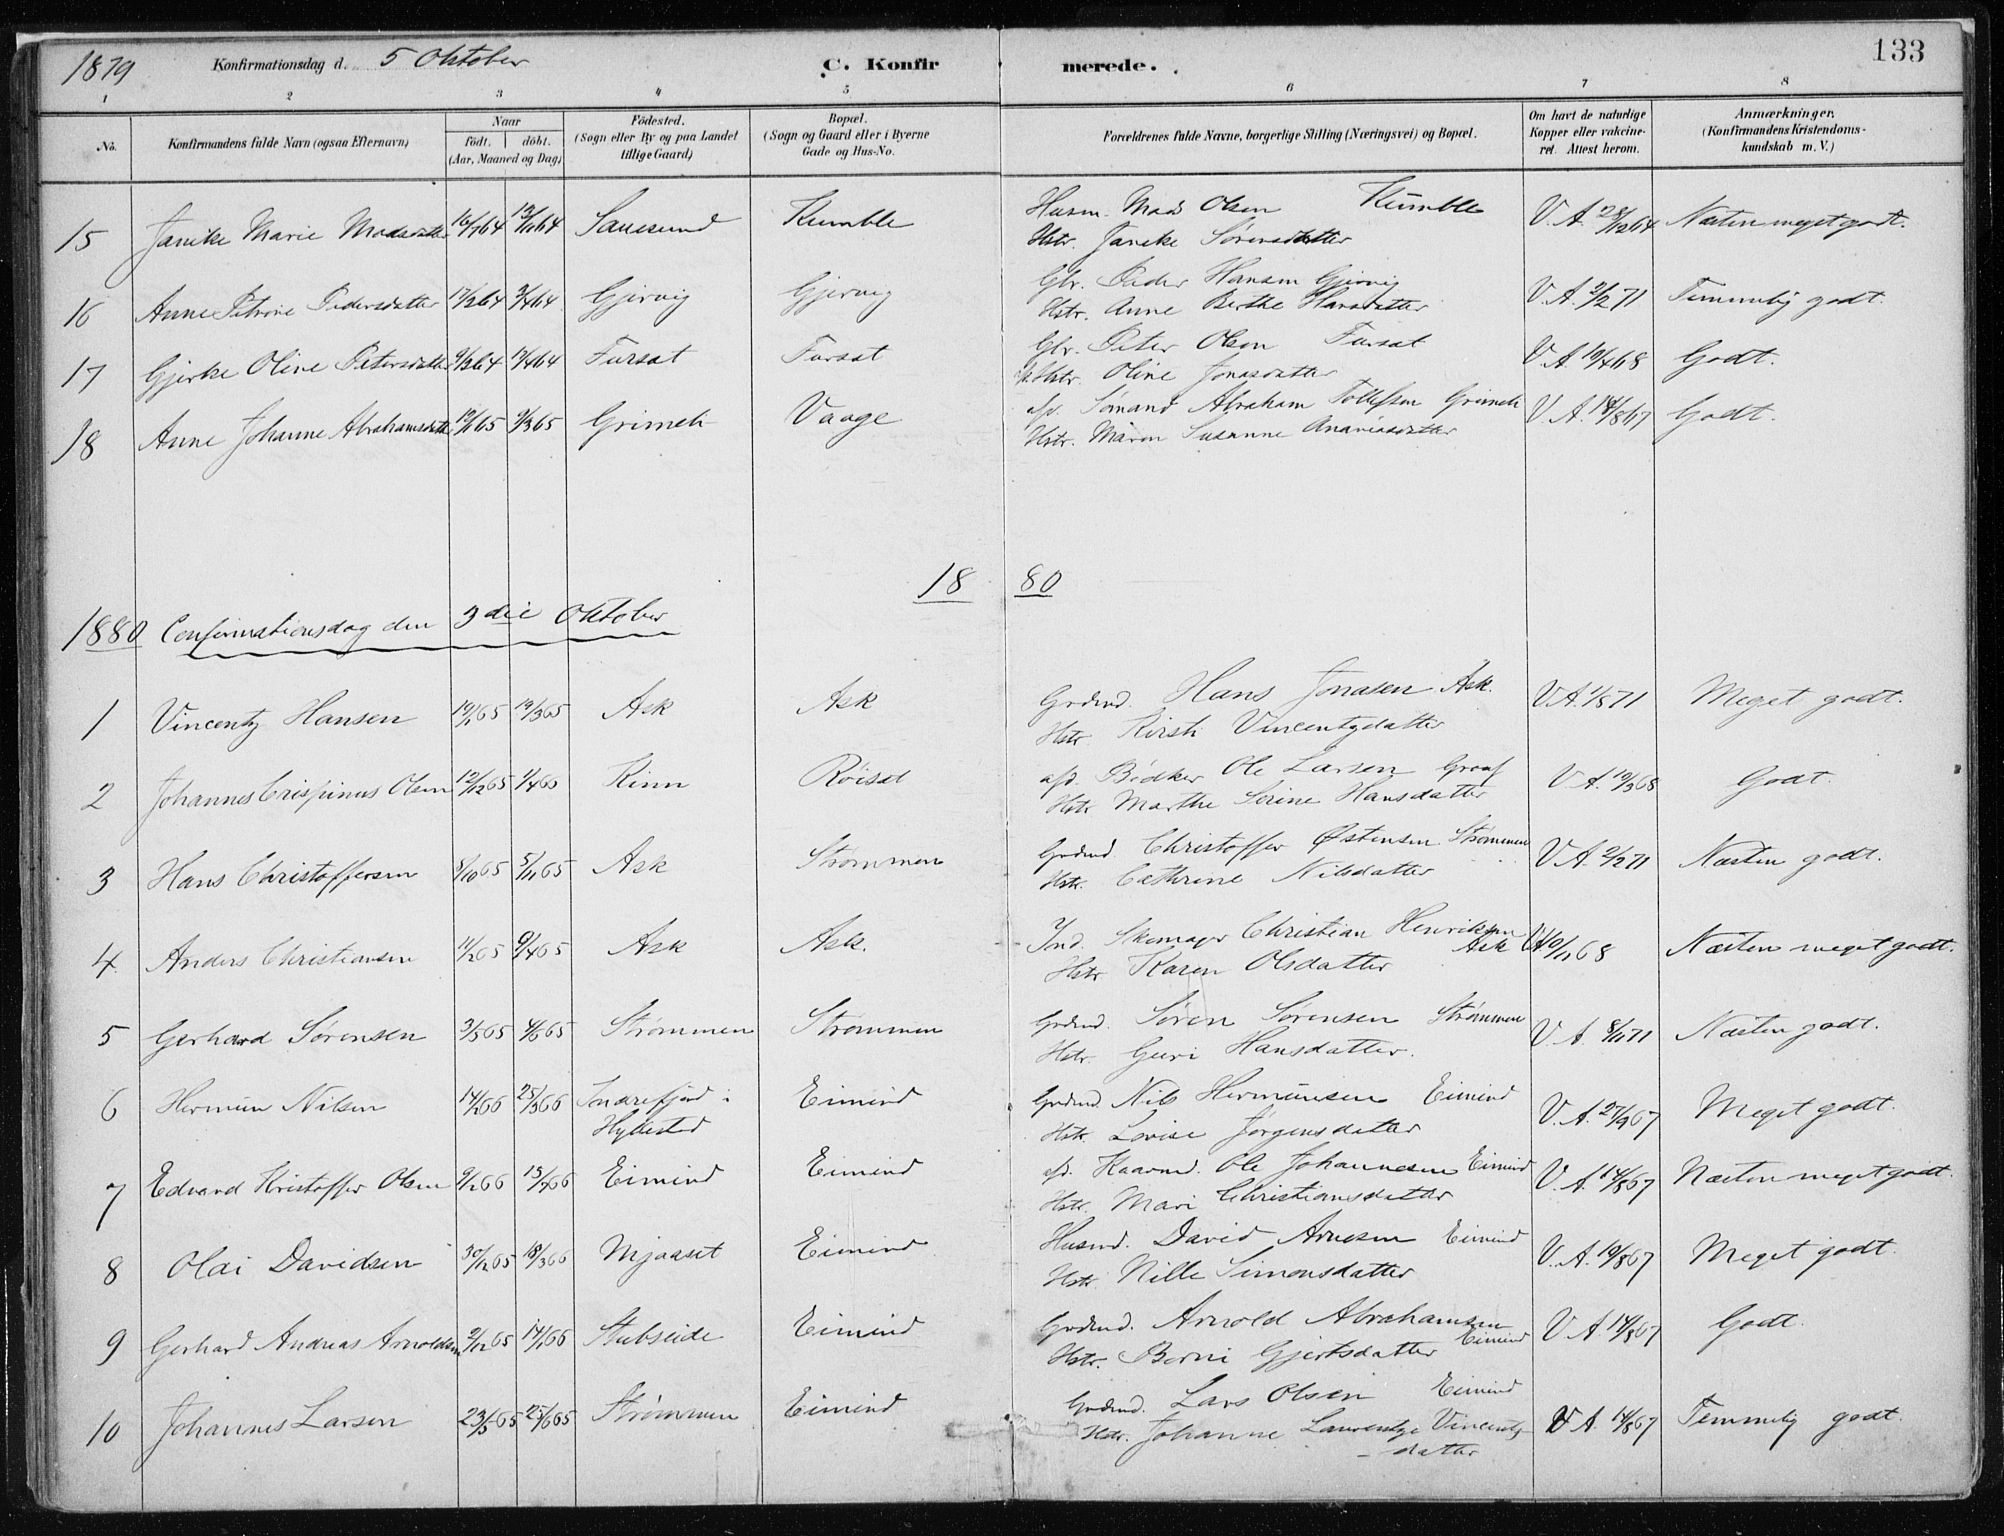 1879 Konfirmationsdag d. 5 Oktober C. Konfir merede. 133
1 2 3 4 5 6 7 8
No. Konfirmandens fulde Navn (ogsaa Efternavn) Naar födt. döbt. (Aar, Maaned og Dag) Födested. (Sogn eller By og paa Landet tillige Gaard) Bopæl. (Sogn og Gaard eller i Byerne Gade og Hus-No. Forældrenes fulde Navne, borgerlige Stilling (Næringsvei) og Bopæl. Om havt de naturlige Kopper eller vakcineret. Attest herom. Anmærkninger. (Konfirmandens Kristendomskundskab m. V.)
15 Janike Marie Madsdatter 16/7 64 13/11 64 Sauesund Kumble Husm. Mads Olsen Kumble V. A. 28/12 64 Næsten meget godt.
Hstr. Janeke Sørensdatter
16 Anne Petrine Pedersdatter 17/2 64 3/4 64 Gjervig Gjervig Gbr. Peder Hansen Gjervig V. A. 2/2 71 Temmelig godt.
Hstr. Anne Berthe Hansdatter
17 Gjerke Oline Petersdatter 9/3 64 17/4 64 Fursat Fursat Gbr. Peter Olsen Fursat V. A. 10/4 68 Godt.
Hstr. Oline Jonasdatter
18 Anne Johanne Abrahamsdatter 12/1 65 9/3 65 Grimeli Vaage afd. Sømand Abraham Tollefsen Grimeli V. A. 14/8 67 Godt.
Hstr. Maren Susanne Ananiasdatter
18 80
1880 Confirmationsdag den 3die Oktober
1 Vincentz Hansen 19/1 65 19/3 65 Ask Ask Grdmd. Hans Jonasen Ask. V. A. 1/8 71 Meget godt.
Hstr. Kirsti Vincentzdatter
2 Johannes Crispinus Olsen 12/12 65 1/4 66 Rinn Röiset afd. Bødker Ole Larsen V. A. 10/3 68 Godt.
Hstr. Marthe Serine Hansdatter
3 Hans Christoffersen 8/10 65 5/11 65 Ask Strømmen Grdmd Christoffer Østensen Strømmen V. A. 2/2 71 Næsten godt.
Hstr. Cathrine Nilsdatter
4 Anders Christiansen 11/2 65 9/4 65 Ask Ask. Ind. Skomager Christian Henriksen Ask 10/11 68 Næsten meget godt.
Hstr Karen Olsdatter
5 Gerhard Sørensen 3/5 65 4/6 65 Strømmen Strømmen Grdmd. Søren Sørensen Strømmen V. A. 8/11 71 Næsten godt.
Hstr. Guri Hansdatter.
6 Hermun Nilsen 14/2 66 25/3 66 Indrefjord i Hyllestad Eimind Grdmd. Nils Hermunsen Eimind V. A. 27/9 67 Meget godt.
Hstr. Lovise Jørgensdatter
7 Edvard Kristoffer Olsen 9/2 66 15/4 66 Eimind Eimind afd. Kaarmd. Ole Johannesen Eimind V. A. 14/8 67 Næsten meget godt.
Hstr. Mari Christiansdatter
8 Olai Davidsen 30/12 65 18/3 66 Mjaaset Eimind Husmd. David Arnesen Eimind V. A. 19/8 67 Meget godt.
Hstr. Nille Simonsdatter
9 Gerhard Andreas Arnoldsen 2/12 65 14/1 66 Stubseide Eimind Grdmd. Arnold Abrahamsen Eimind V A 14/8 67 Godt.
Hstr. Berni Gjertsdatter
10 Johannes Larsen 23/5 65 25/6 65 Strømmen Eimind Grdmd. Lars Olsen Eimind V A. 14/8 67 Temmelig godt.
Hstr. Johanne Laurentze Vincentz-
datter